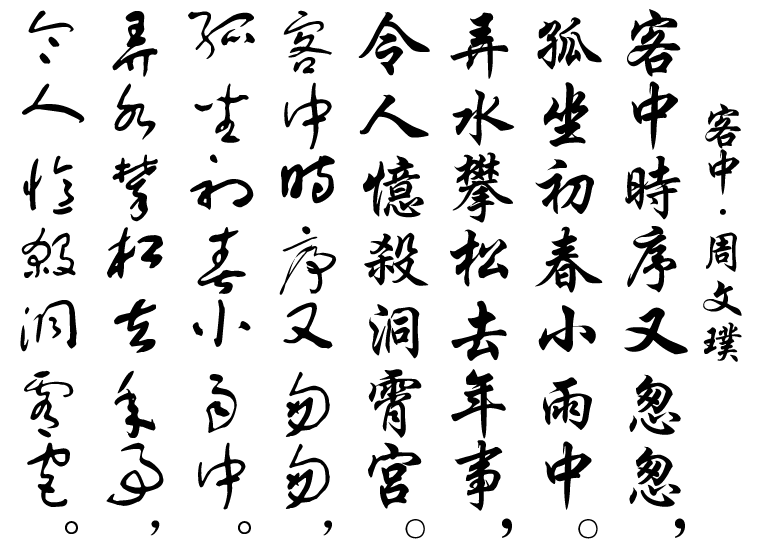 客中·周文璞
客中時序又怱怱，
孤坐初春小雨中。
弄水攀松去年事，
令人憶殺洞霄宮。
客中時序又匆匆，
孤坐初春小雨中。
弄水攀松去年事，
令人憶殺洞霄宮。